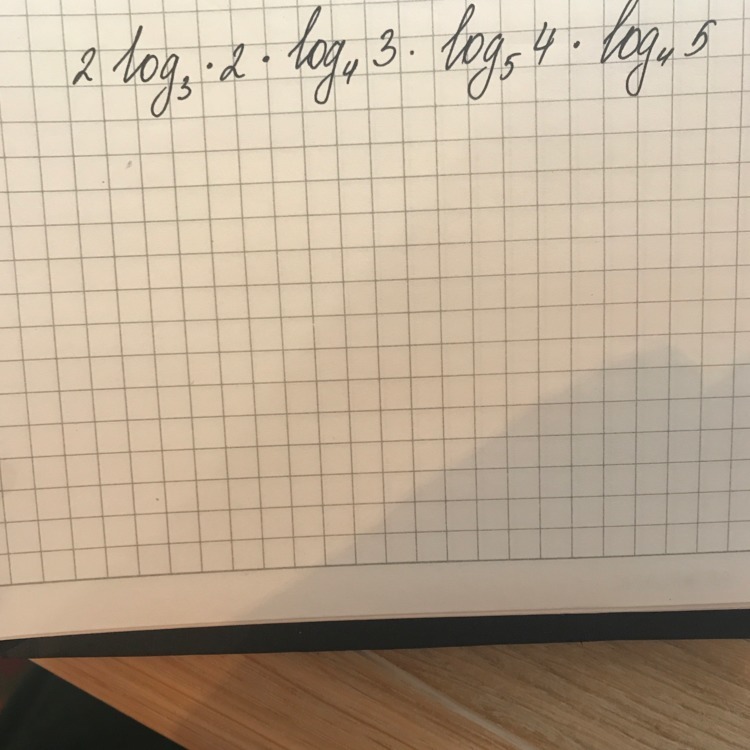 2 log₃ · 2 · log₄ 3 · log₅ 4 · log₄ 5